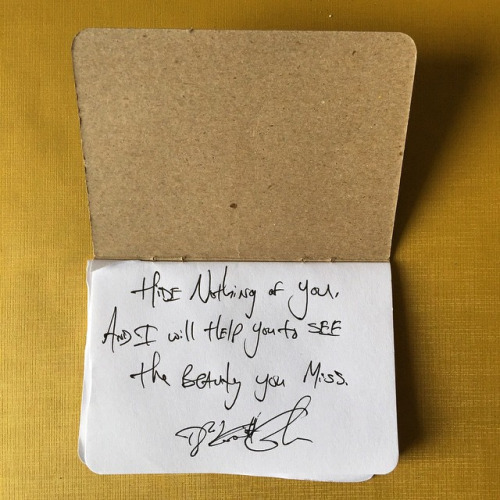 HiDE Nothing of You.
AND I will HELP you to SEE
the BEAUty you Miss.